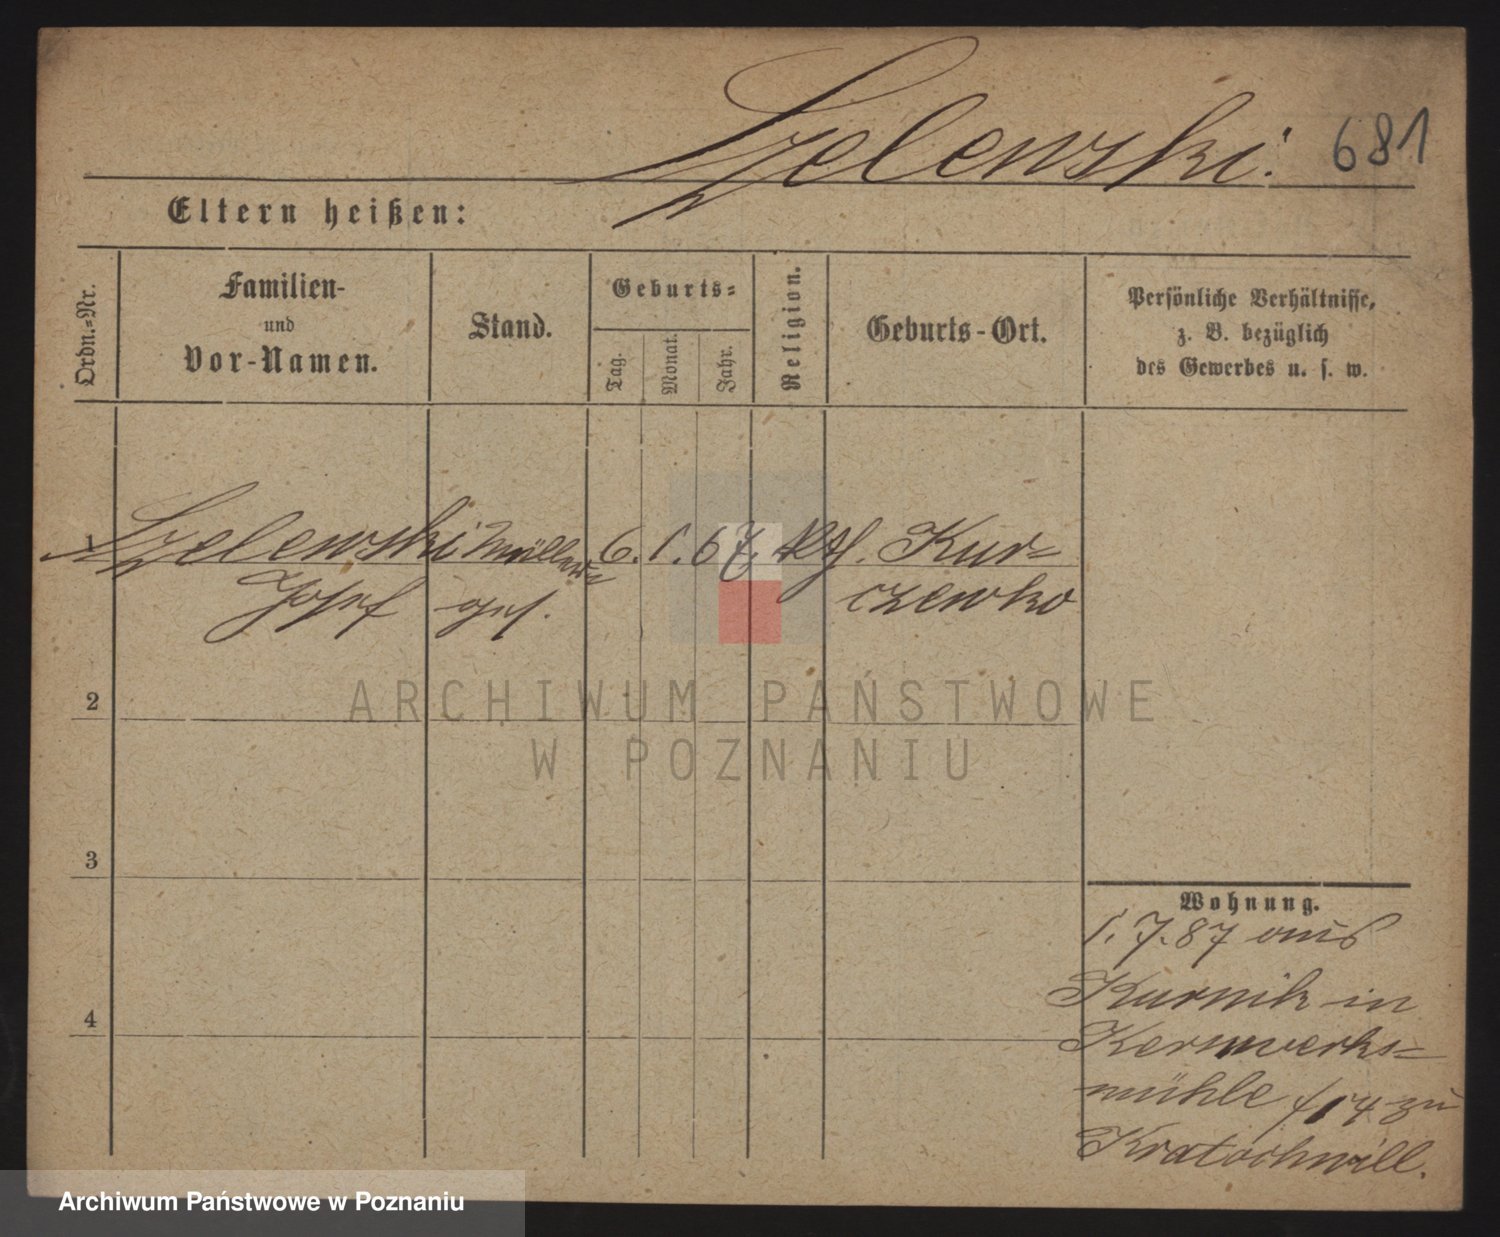 Szelewski. 681
Eltern heißen:
Ordn.=Nr.
Familien-
und
Vor-Namen.
Stand.
Geburts=
Tag.
Monat.
Jahr.
Religion.
Geburts-Ort.
Persönliche Verhältnisse,
z. B. bezüglich
des Gewerbes u. s. w.
1 Szelewski Müller= 6. 1. 67. Kth. Kur=
Josef ges. czewko
2
ARCHIWUM PAŃSTWOWE
W POZNANIU
3
Wohnung.
1. 7. 87 aus
Kurnik in
4
Kernwerks=
mühle zu
Kratochwill.
Archiwum Państwowe w Poznaniu